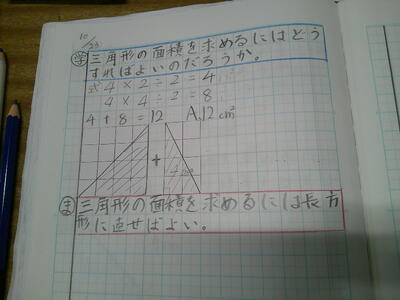 10/23
学 三角形の面積を求めるにはどう
すればよいのだろうか。
式 4×2÷2=4
4×4÷2=8
4+8=12 A,12cm²
+
ま 三角形の面積を求めるには長方
形に直せばよい。